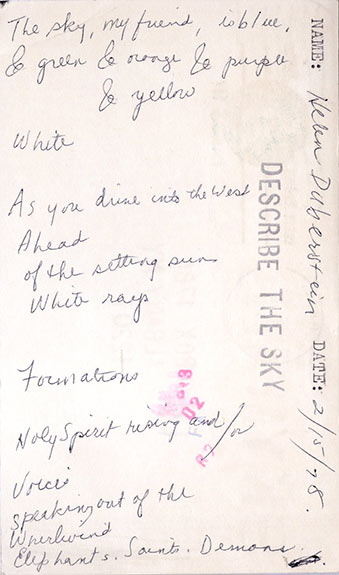 The sky, my friend, is blue,
& green & orange & purple
& yellow
White
As you drive into the West
Ahead
of the setting sun
White rays
Formations
Holy Spirit rising and/or
Voices
speaking out of the
Whirlwind
Elephants. Saints. Demons.
DESCRIBE THE SKY
NAME: Helen Duberstein DATE: 2/15/78.